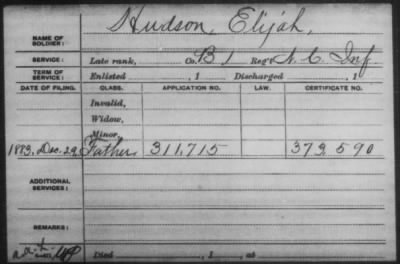 Hudson, Elijah,
NAME OF SOLDIER:
SERVICE: Late rank, Co. B, 1 Reg't N. C. Inf
TERM OF SERVICE: Enlisted , 1 Discharged , 1
DATE OF FILING. CLASS. APPLICATION NO. LAW. CERTIFICATE NO.
Invalid,
Widow,
Minor,
1883, Dec. 29, Father 311,715 373,590
ADDITIONAL SERVICES:
REMARKS:
Died , 1 , at